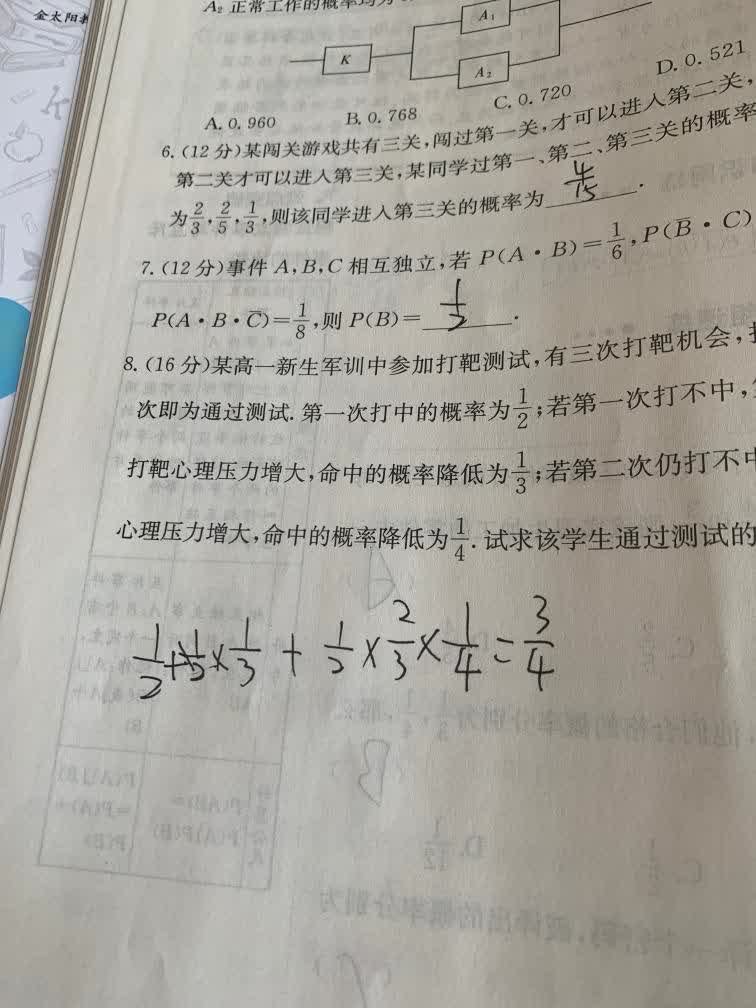 金太阳教
A₂ 正常工作的概率均为
K
A₁
A₂
A. 0.960 B. 0.768 C. 0.720 D. 0.521
6. (12分)某闯关游戏共有三关,闯过第一关,才可以进入第二关,
第二关才可以进入第三关,某同学过第一、第二、第三关的概率
为2/3,2/5,1/3,则该同学进入第三关的概率为 4/15 .
7. (12分)事件 A,B,C 相互独立,若 P(A·B)=1/6, P(B̅·C)
P(A·B·C̅)=1/8,则 P(B)= 1/2 .
8. (16分)某高一新生军训中参加打靶测试,有三次打靶机会,
次即为通过测试. 第一次打中的概率为1/2;若第一次打不中,
打靶心理压力增大,命中的概率降低为1/3;若第二次仍打不中
心理压力增大,命中的概率降低为1/4. 试求该学生通过测试的
1/2+1/2×1/3+1/2×2/3×1/4=3/4